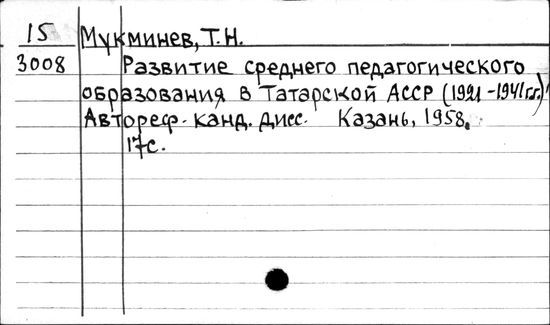 15 Мукминев, Т.Н.
3008 Развитие среднего педагогического
образования в Татарской АССР (1921-1941гг.)
Автореф. канд. дисс. Казань, 1958.
17с.